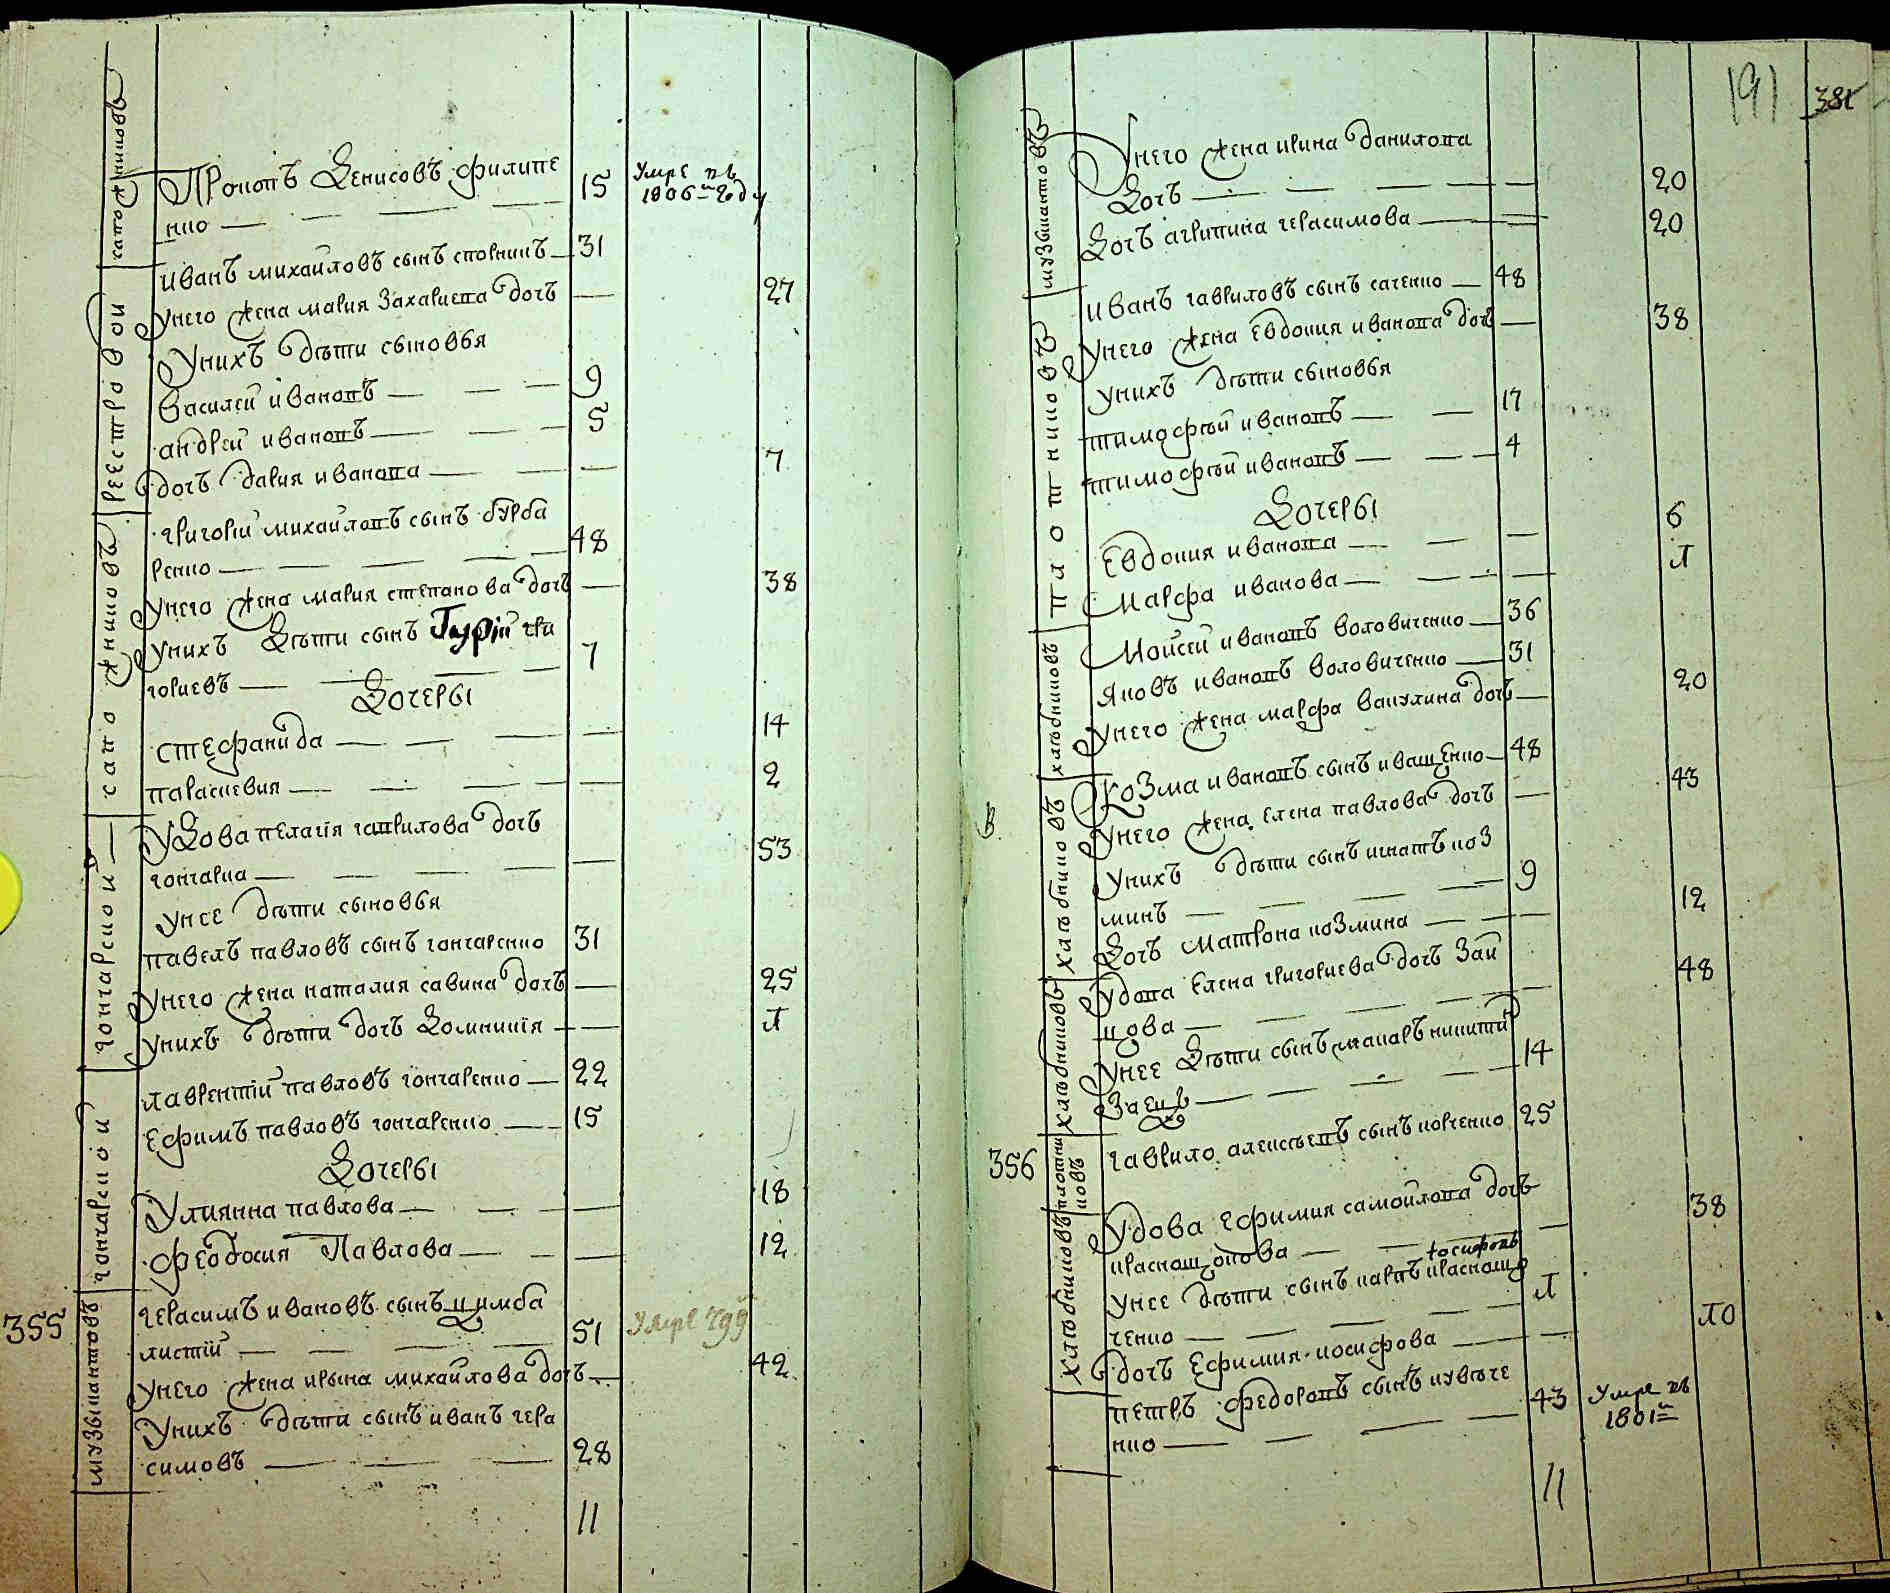 сапожниковъ
Прокопъ Денисовъ филипе 15 Умре въ
нко 1806м году
реестровои
иванъ михайловъ сынъ сполникъ 31
унего жена мария Захариева дочъ 27
Унихъ дѣти сыновья
василей ивановъ 9
андрей ивановъ 5
дочъ дария иванова 7
сапожниковъ
григорій михайловъ сынъ бурба
ренко 48
унего жена мария степанова дочъ 38
унихъ дѣти сынъ Гурій гри
гориевъ 7
Дочеры
стефанида 14
параскевия 2
гончарской
Удова пелагія гаврилова дочъ
гончарка 53
унее дѣти сыновья
павелъ павловъ сынъ гончаренко 31
унего жена наталия савина дочъ 25
унихъ дѣти дочъ Домникія л
гончарской
лаврентій павловъ гончаренко 22
ефимъ павловъ гончаренко 15
Дочеры
Улиянна павлова 18
феодосия Павлова 12
355
музыкантовъ
герасимъ ивановъ сынъ цимба
листій 51 Умре 799
унего жена ирына михайлова дочъ 42
Унихъ дѣти сынъ иванъ гера
симовъ 28
11
191 381
музыкантовъ
Унего жена ирина данилова
Дочъ 20
Дочъ агрипина герасимова 20
плотниковъ
иванъ гавриловъ сынъ саченко 48
унего жена Евдокия иванова дочъ 38
унихъ дѣти сыновья
тимофѣй ивановъ 17
тимофѣй ивановъ 4
Дочеры
Евдокия иванова 6
Марфа иванова л
хлѣбниковъ
Моисей ивановъ воловиченко 36
яковъ ивановъ воловиченко 31
унего жена марфа вакулина дочъ 20
В
хлѣбниковъ
козма ивановъ сынъ иващенко 48
унего жена елена павлова дочъ 43
унихъ дѣти сынъ игнатъ коз
минъ 9
Дочъ матрона козмина 12
хлѣбниковъ
удова Елена григориева дочъ Заи
цова 48
унее Дѣти сынъ макаръ никити
Заецъ 14
356
плотниковъ
гаврило алексѣевъ сынъ корченко 25
хлѣбниковъ
Удова Ефимия самойлова дочъ
краснощокова 38
иосифовъ
унее дѣти сынъ карпъ краснощо
ченко л
дочъ Ефимия иосифова 10
петръ федоровъ сынъ кувѣче
нко 43 Умре въ
1801м
11